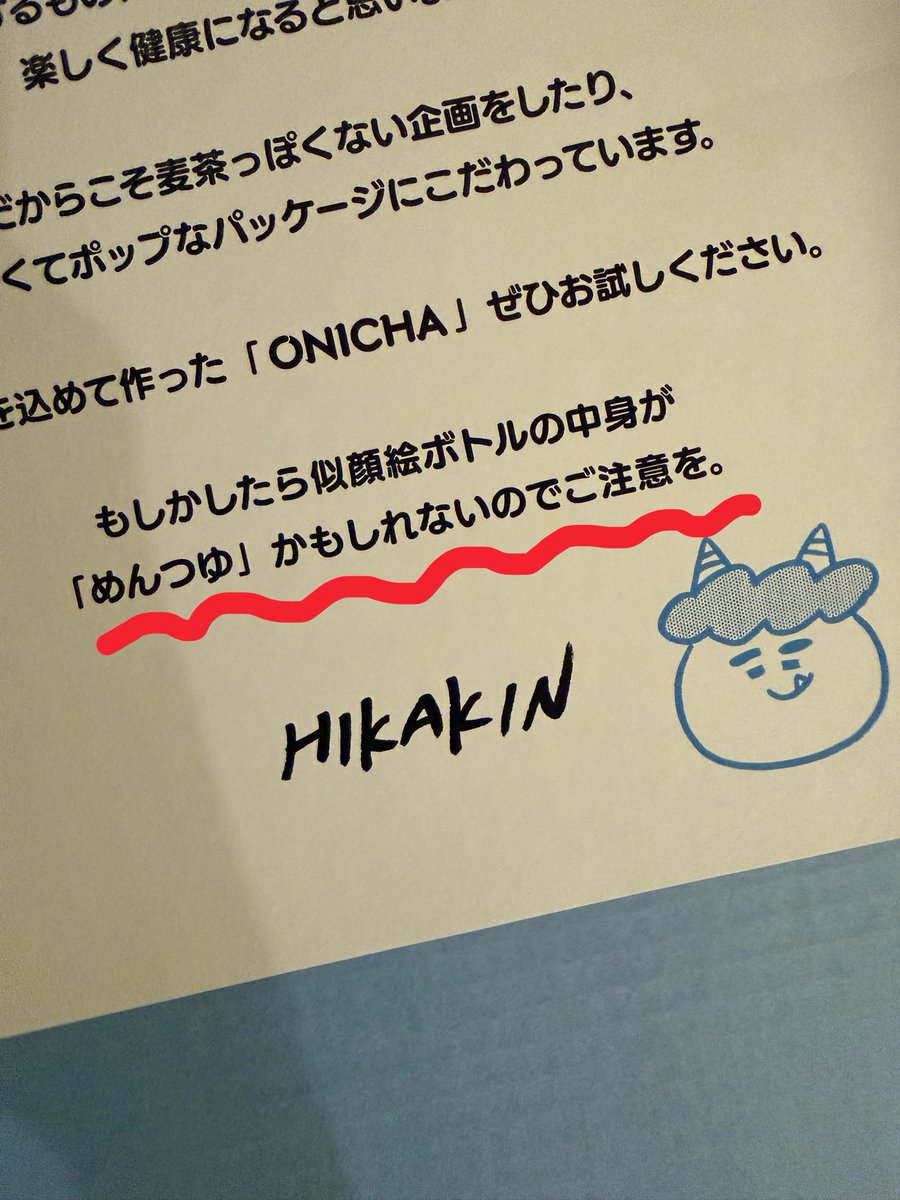 るもの
楽しく健康になると思いま
だからこそ麦茶っぽくない企画をしたり、
くてポップなパッケージにこだわっています。
を込めて作った「ONICHA」ぜひお試しください。
もしかしたら似顔絵ボトルの中身が
「めんつゆ」かもしれないのでご注意を。
HIKAKIN